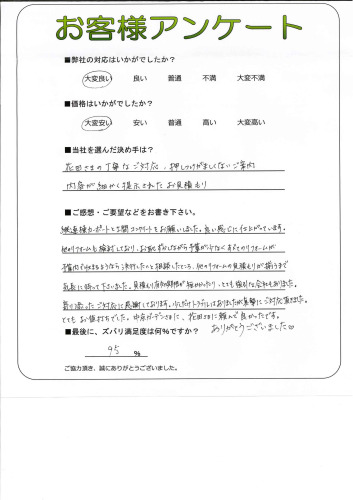 お客様アンケート
■弊社の対応はいかがでしたか?
大変良い 良い 普通 不満 大変不満
■価格はいかがでしたか?
大変安い 安い 普通 高い 大変高い
■当社を選んだ決め手は?
花田さまの丁寧なご対応、押しつけがましくないご案内
内容が細かく提示されたお見積もり
■ご感想・ご要望などをお書き下さい。
縦連棟カーポートと土間コンクリートをお願いしました。良い感じに仕上がっています。
他のリフォームも検討しており、お恥ずかしながら予算が少なくすべてのリフォームが
予算内で収まるようなら決行したいと相談したところ、他のリフォームの見積もりが揃うまで
気長に待って下さいました。見積もり有効期限が短かかったり、とても強引な会社もありました。
寄り添ったご対応に感謝しております。少しだけトラブルはありましたが真摯にご対応頂きました。
とてもお値打ちでした。中京ガーデンさまに、花田さまに頼んで良かったです。
ありがとうございました
■最後に、ズバリ満足度は何%ですか?
95 %
ご協力頂き、誠にありがとうございました。